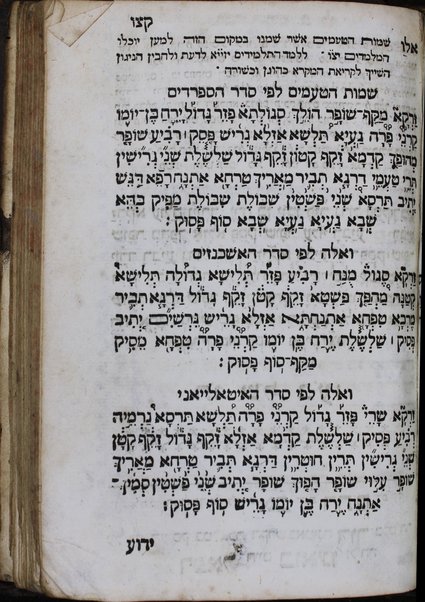 קצו
אלו שמות הטעמים אשר שמנו במקום הזה למען יוכלו
המלמדים יצו׳ ללמד התלמידים יזי״א לדעת ולהבין הניגון
השייך לקריאת המקרא כהוגן וכשורה׃
שמות הטעמים לפי סדר הספרדים
זרקא מקף־שופר הולך סגולתא פזר גדול ירח בן־יומו
קרני פרה געיא תלשא אזלא גריש פסק׀ רביע שופר
מהופך קדמא זקף קטון זקף גדול שלשלת שני גרישין
תרי טעמי דרגא תביר מאריך טרחא אתנח רפא דגש
יתיב תרסא שני פשטין שבולת שבולת מפיק בהא
שבא געיא געיא שבא סוף פסוק׃
ואלה לפי סדר האשכנזים
זרקא סגול מנח׀ רביע פזר תלישא גדולה תלישא
קטנה מהפך פשטא זקף קטן זקף גדול דרגא תביר
מרכא טפחא אתנחתא אזלא גריש גרשים יתיב
פסק׀ שלשלת ירח בן יומו קרני פרה טפחא מסיק
מקף־סוף פסוק׃
ואלה לפי סדר האיטאלייאני
זרקא שרי פזר גדול קרני פרה תלשא תרסא גרמיה
רביע פסיק׀ שלשלת קדמא אזלא זקף גדול זקף קטן
שני גרישין תרין חוטרין דרגא תביר טרחא מאריך
שופר עלוי שופר הפוך שופר יתיב שני פשטין סמין־
אתנח ירח בן יומו גריש סוף פסוק׃
ידוע